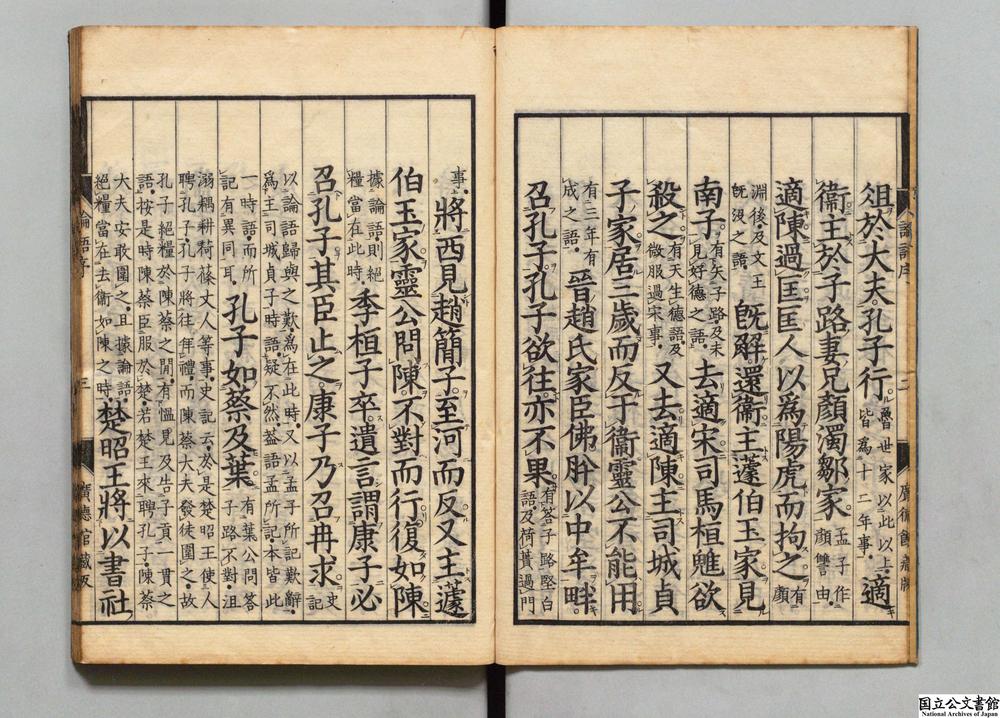 俎於大夫孔子行魯世家以此以上皆爲十二年事適
衞主於子路妻兄顏濁鄒家孟子作顏讎由
適陳過匡匡人以爲陽虎而拘之有顏
淵後及文王旣沒之語旣解還衞主蘧伯玉家見
南子有矢子路及未見好德之語去適宋司馬桓魋欲
殺之有天生德語及微服過宋事又去適陳主司城貞
子家居三歲而反于衞靈公不能用
有三年有成之語晉趙氏家臣佛肸以中牟畔
召孔子孔子欲往亦不果有答子路堅白語及荷蕢過門
事將西見趙簡子至河而反又主蘧
伯玉家靈公問陳不對而行復如陳
據論語則絕糧當在此時季桓子卒遺言謂康子必
召孔子其臣止之康子乃召冉求史記
以論語歸與之歎爲在此時又以孟子所記歎辭
爲主司城貞子時語疑不然蓋語孟所記本皆此
一時語而所記有異同耳孔子如蔡及葉有葉公問答子路不對沮
溺耦耕荷蓧丈人等事史記云於是楚昭王使人
聘孔子孔子將往拜禮而陳蔡大夫發徒圍之故
孔子絕糧於陳蔡之閒有慍見及告子貢一貫之
語按是時陳蔡臣服於楚若楚王來聘孔子陳蔡
大夫安敢圍之且據論語絕糧當在去衞如陳之時楚昭王將以書社
論語序
三
廣德館藏版
二
国立公文書館
National Archives of Japan